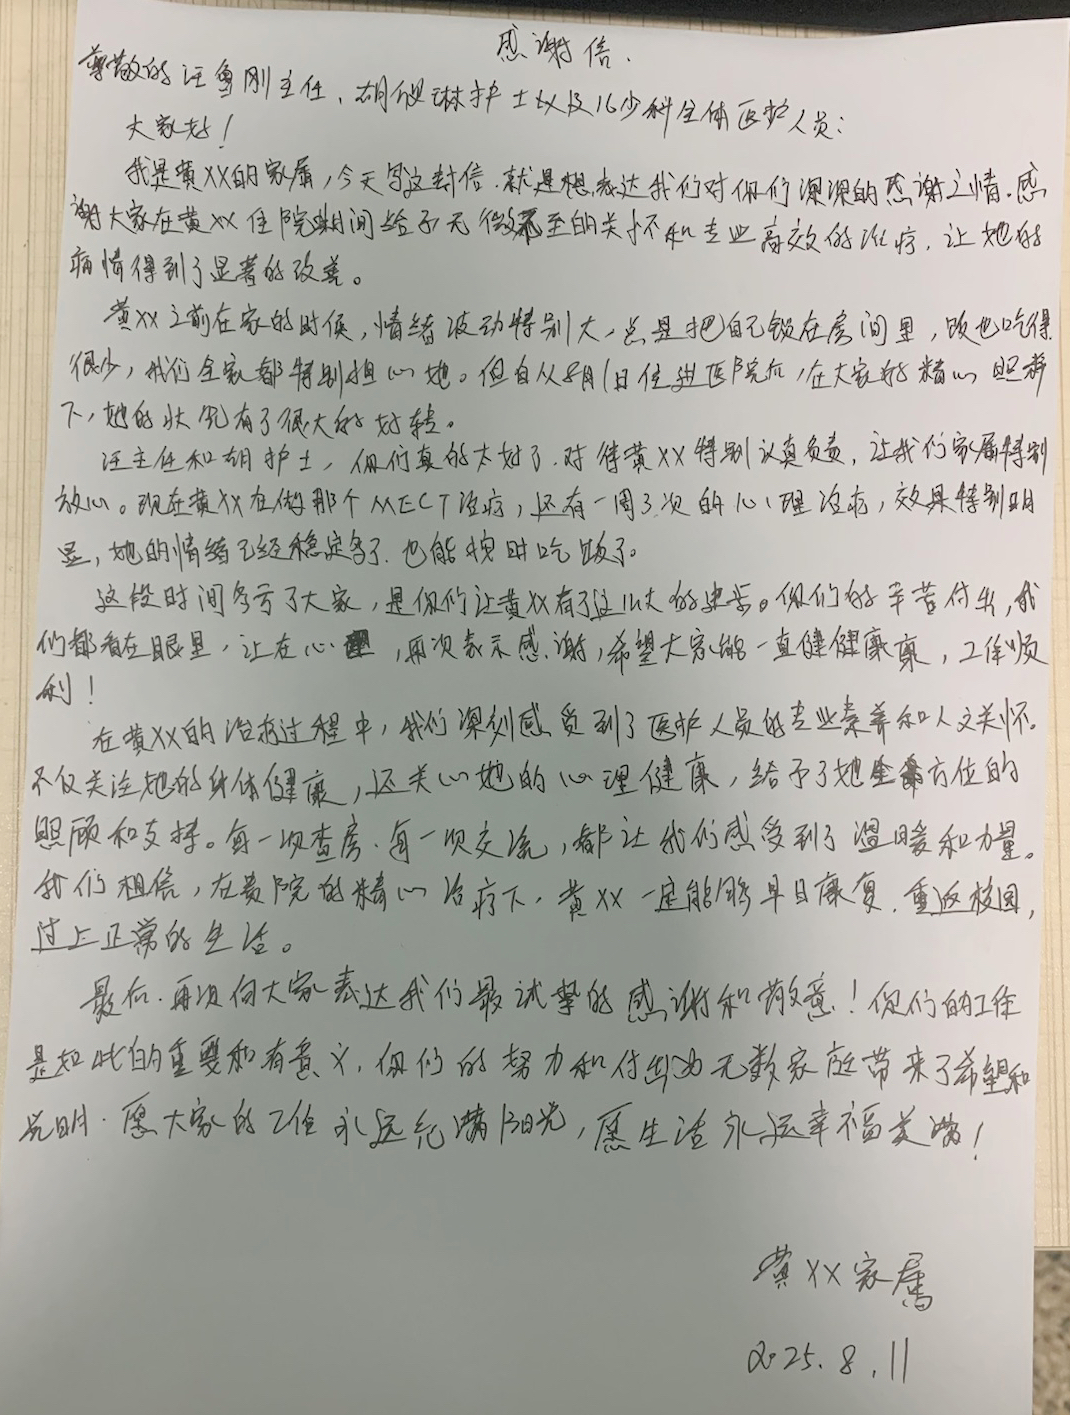 感谢信.
尊敬的汪 刚主任、胡 琳护士以及16少科全体医护人员：
大家好！
我是黄XX的家属，今天写这封信.就是想表达我们对你们深深的感谢之情.感
谢大家在黄XX住院期间给予无微不至的关怀和专业高效的治疗，让她的
病情得到了显著的改善。
黄XX之前在家的时候，情绪波动特别大，总是把自己锁在房间里，饭也吃得
很少，我们全家都特别担心她。但自从8月1日住进医院后，在大家的精心照料
下，她的状况有了很大的好转。
汪主任和胡护士，你们真的太好了.对待黄XX特别认真负责，让我们家属特别
放心。现在黄XX在做那个MECT治疗，还有一周3次的心理治疗，效果特别明
显，她的情绪已经稳定多了.也能按时吃饭了。
这段时间多亏了大家，是你们让黄XX有了这么大的进步。你们的辛苦付出，我
们都看在眼里，让在心里，再次表示感谢，希望大家能一直健健康康，工作顺
利！
在黄XX的治疗过程中，我们深刻感受到了医护人员的专业素养和人文关怀。
不仅关注她的身体健康，还关心她的心理健康，给予了她全方位的
照顾和支持。每一次查房.每一次交流，都让我们感受到了温暖和力量。
我们相信，在贵院的精心治疗下，黄XX一定能够早日康复.重返校园，
过上正常的生活。
最后.再次向大家表达我们最诚挚的感谢和敬意！你们的工作
是如此的重要和有意义，你们的努力和付出为无数家庭带来了希望和
光明.愿大家的工作永远充满阳光，愿生活永远幸福美满！
黄XX家属
2025.8.11